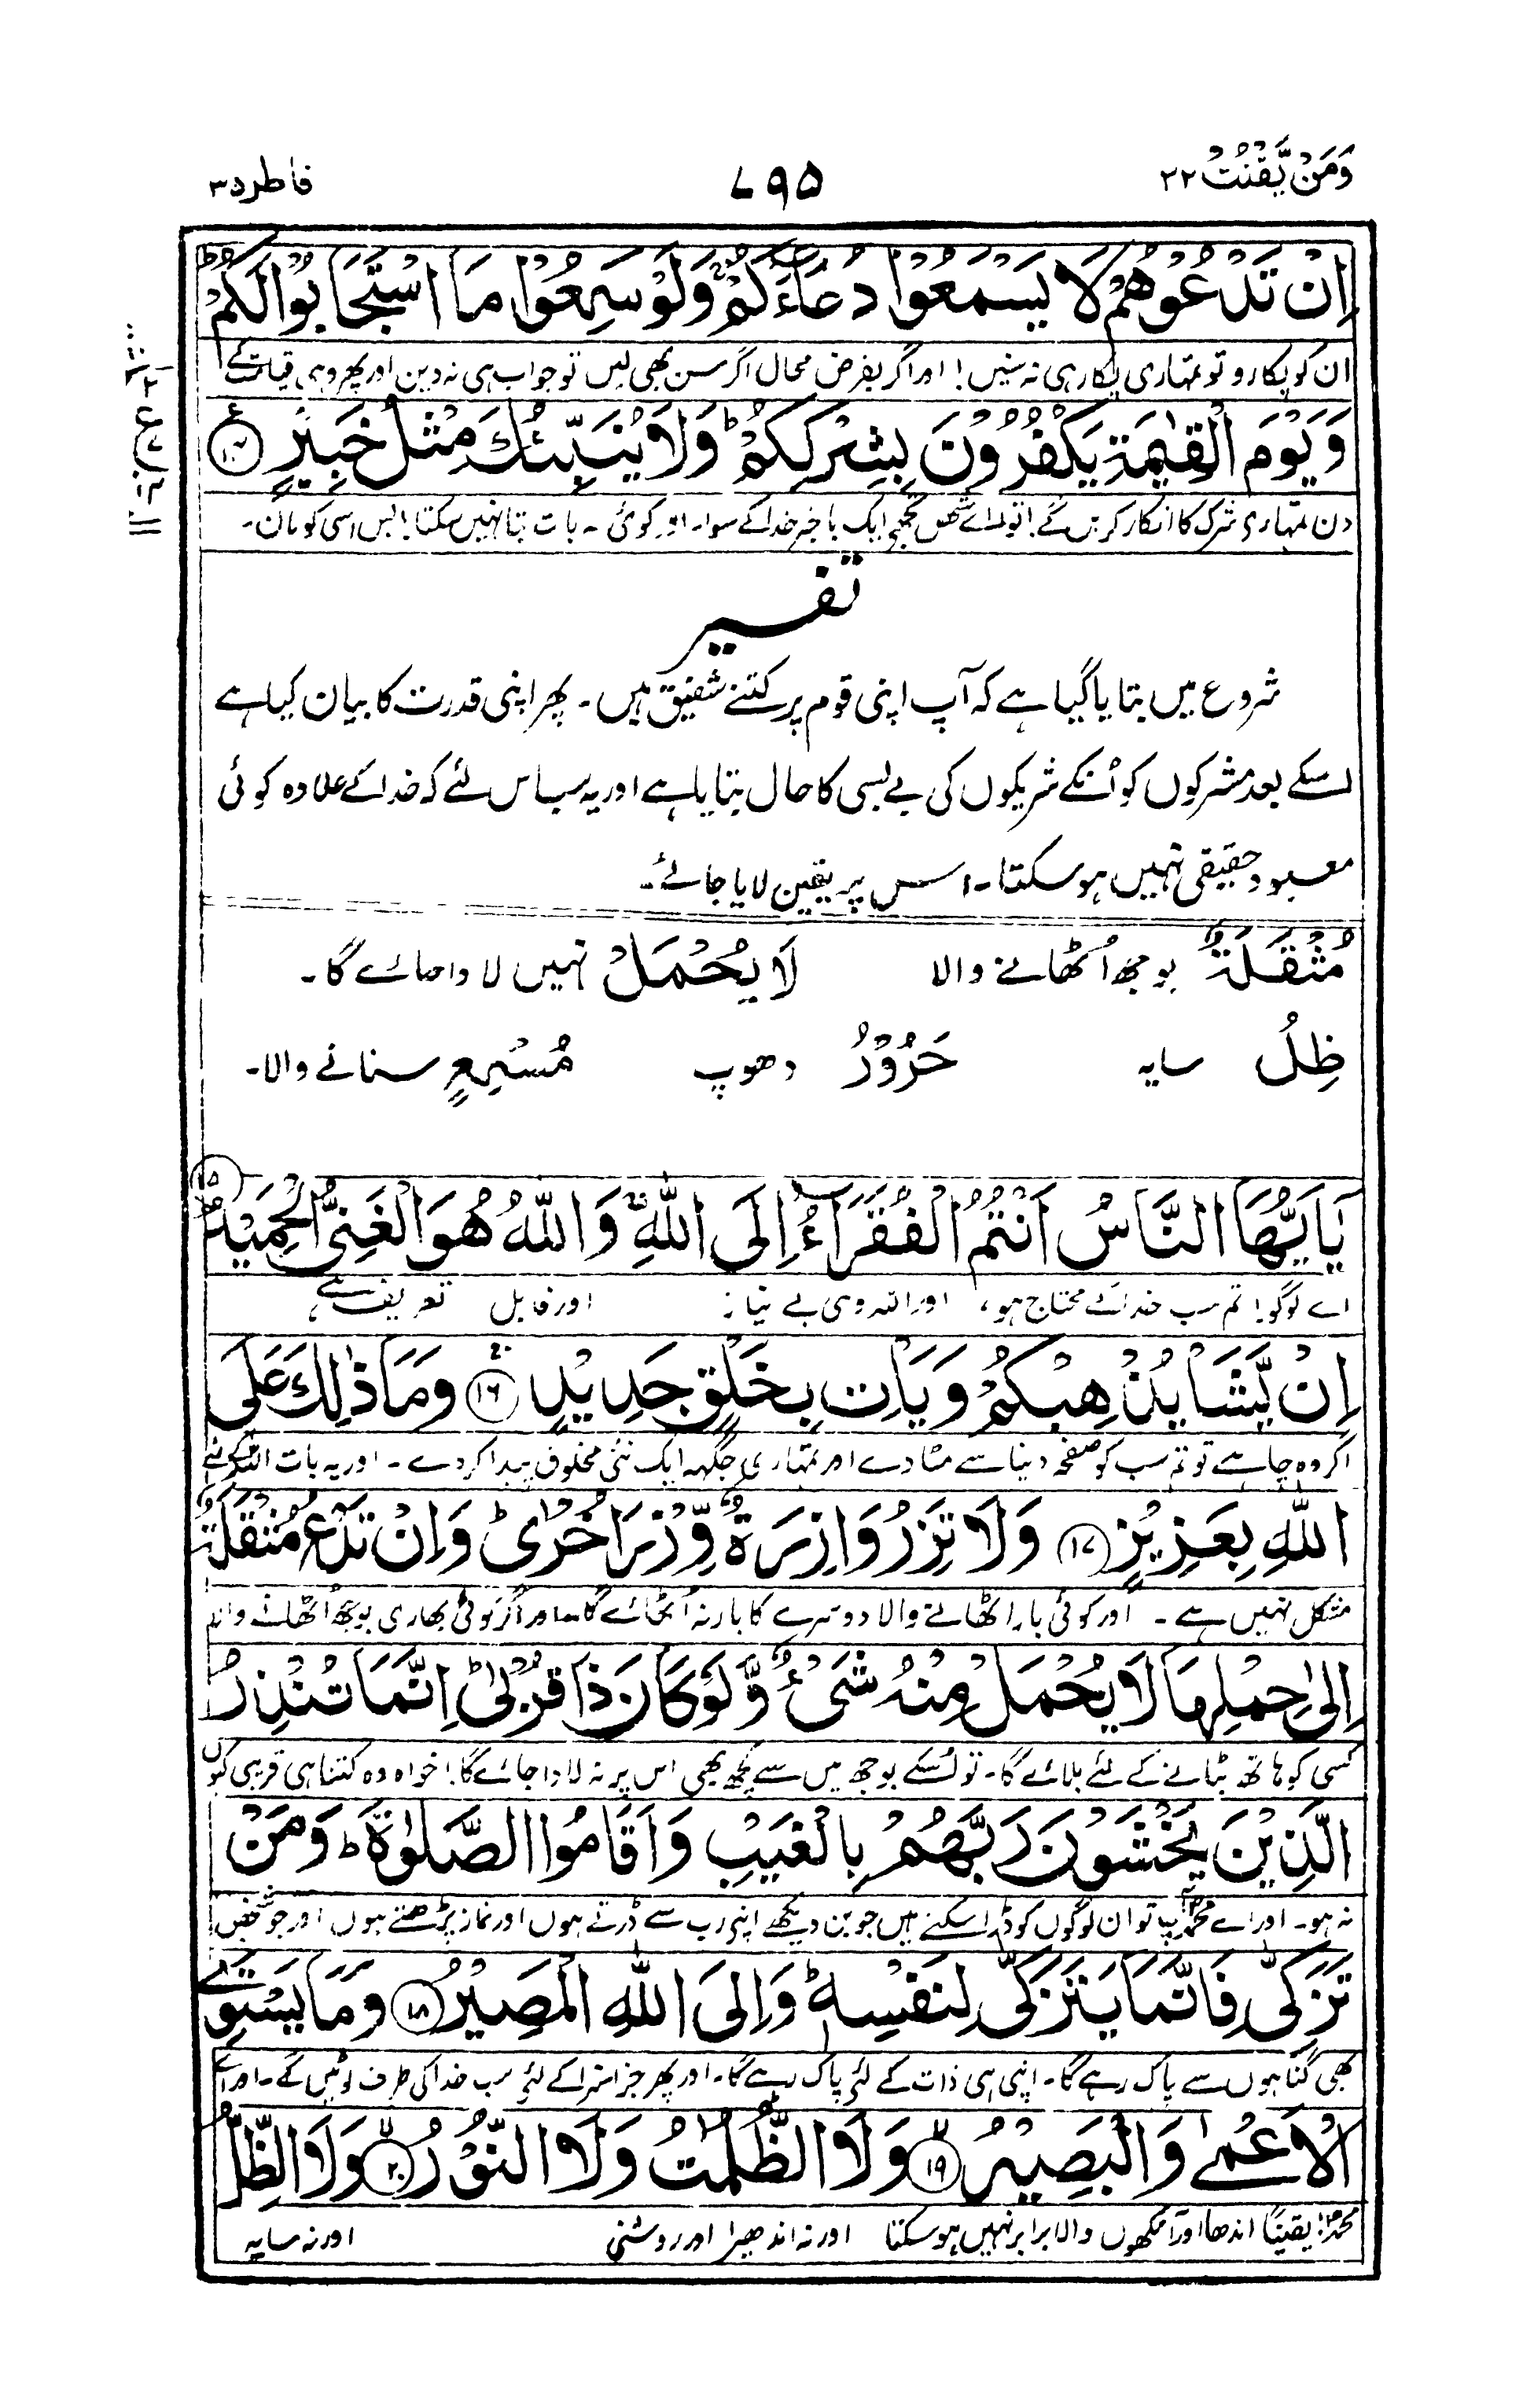 وَمَنْ يَّقْنُتْ ۲۲
۷۹۵
فاطر ۳۵
اِنْ تَدْعُوْهُمْ لَا يَسْمَعُوْا دُعَآءَكُمْ ۚ وَلَوْ سَمِعُوْا مَا اسْتَجَابُوْا لَكُمْ ؕ
ان کو پکارو تو تمہاری پکار ہی نہ سنیں! اور اگر بفرض محال اگر سن بھی لیں تو جواب ہی نہ دین اور پھر وہی قیامت کے
وَيَوْمَ الْقِيٰمَةِ يَكْفُرُوْنَ بِشِرْكِكُمْ ؕ وَلَا يُنَبِّئُكَ مِثْلُ خَبِيْرٍ
دن تمہاری شرک کا انکار کریں گے! تو اے شخص تجھے ایک باخبر خدا کے سوا۔ اور کوئی ۔ بات بتا نہیں سکتا! بس اسی کو مان۔
تفسیر
شروع میں بتایا گیا ہے کہ آپ اپنی قوم پر کتنے شفیق ہیں۔ پھر اپنی قدرت کا بیان کیا ہے
اسکے بعد مشرکوں کو اُنکے شریکوں کی بے بسی کا حال بتایا ہے اور یہ سب اس لئے کہ خدا کے علاوہ کوئی
معبود حقیقی نہیں ہو سکتا۔ اس پر یقین لایا جائے۔
مُثْقَلَةٌ بوجھ اُٹھانے والا لَا يُحْمَلْ نہیں لادا جائے گا۔
ظِلُّ سایہ حَرُوْرُ دھوپ مُسْمِعٍ سنانے والا۔
يٰۤاَيُّهَا النَّاسُ اَنْتُمُ الْفُقَرَآءُ اِلَى اللّٰهِ ۚ وَاللّٰهُ هُوَ الْغَنِىُّ الْحَمِيْدُ ۱۵
اے لوگو! تم سب خدا کے محتاج ہو، اور اللہ وہی بے نیاز اور قابل تعریف ہے،
اِنْ يَّشَاْ يُذْهِبْكُمْ وَيَاْتِ بِخَلْقٍ جَدِيْدٍ ۱۶ وَمَا ذٰلِكَ عَلَى
اگر وہ چاہے تو تم سب کو صفحہ دنیا سے مٹا دے اور تمہاری جگہہ ایک نئی مخلوق پیدا کر دے ۔ اور یہ بات اللہ کے لئے
اللّٰهِ بِعَزِيْزٍ ۱۷ وَلَا تَزِرُ وَازِرَةٌ وِّزْرَ اُخْرٰى ؕ وَاِنْ تَدْعُ مُثْقَلَةٌ
مشکل نہیں ہے ۔ اور کوئی بار اٹھانے والا دوسرے کا بار نہ اُٹھائے گا اور اگر کوئی بھاری بوجھ اُٹھانے والا
اِلٰى حِمْلِهَا لَا يُحْمَلْ مِنْهُ شَىْءٌ وَّلَوْ كَانَ ذَا قُرْبٰى ؕ اِنَّمَا تُنْذِرُ
کسی کو ہاتھ بٹانے کے لئے بلائے گا۔ تو اسکے بوجھ میں سے کچھ بھی اس پر نہ لادا جائے گا! خواہ وہ کتنا ہی قریبی کیوں
الَّذِيْنَ يَخْشَوْنَ رَبَّهُمْ بِالْغَيْبِ وَاَقَامُوا الصَّلٰوةَ ؕ وَمَنْ
نہ ہو۔ اور اے محمدؐ آپ تو ان لوگوں کو ڈرا سکتے ہیں جو بن دیکھے اپنے رب سے ڈرتے ہوں اور نماز پڑھتے ہوں اور جو شخص
تَزَكّٰى فَاِنَّمَا يَتَزَكّٰى لِنَفْسِهٖ ؕ وَاِلَى اللّٰهِ الْمَصِيْرُ ۱۸ وَمَا يَسْتَوِى
بھی گناہوں سے پاک رہے گا۔ اپنی ہی ذات کے لئے پاک رہے گا۔ اور پھر جزا سزا کے لئے سب خدا کی طرف لوٹیں گے۔ اور اے
الْاَعْمٰى وَالْبَصِيْرُ ۱۹ وَلَا الظُّلُمٰتُ وَلَا النُّوْرُ ۲۰ وَلَا الظِّلُّ
محمدؐ! یقیناً اندھا اور آنکھوں والا برابر نہیں ہو سکتا اور نہ اندھیرا اور روشنی اور نہ سایہ